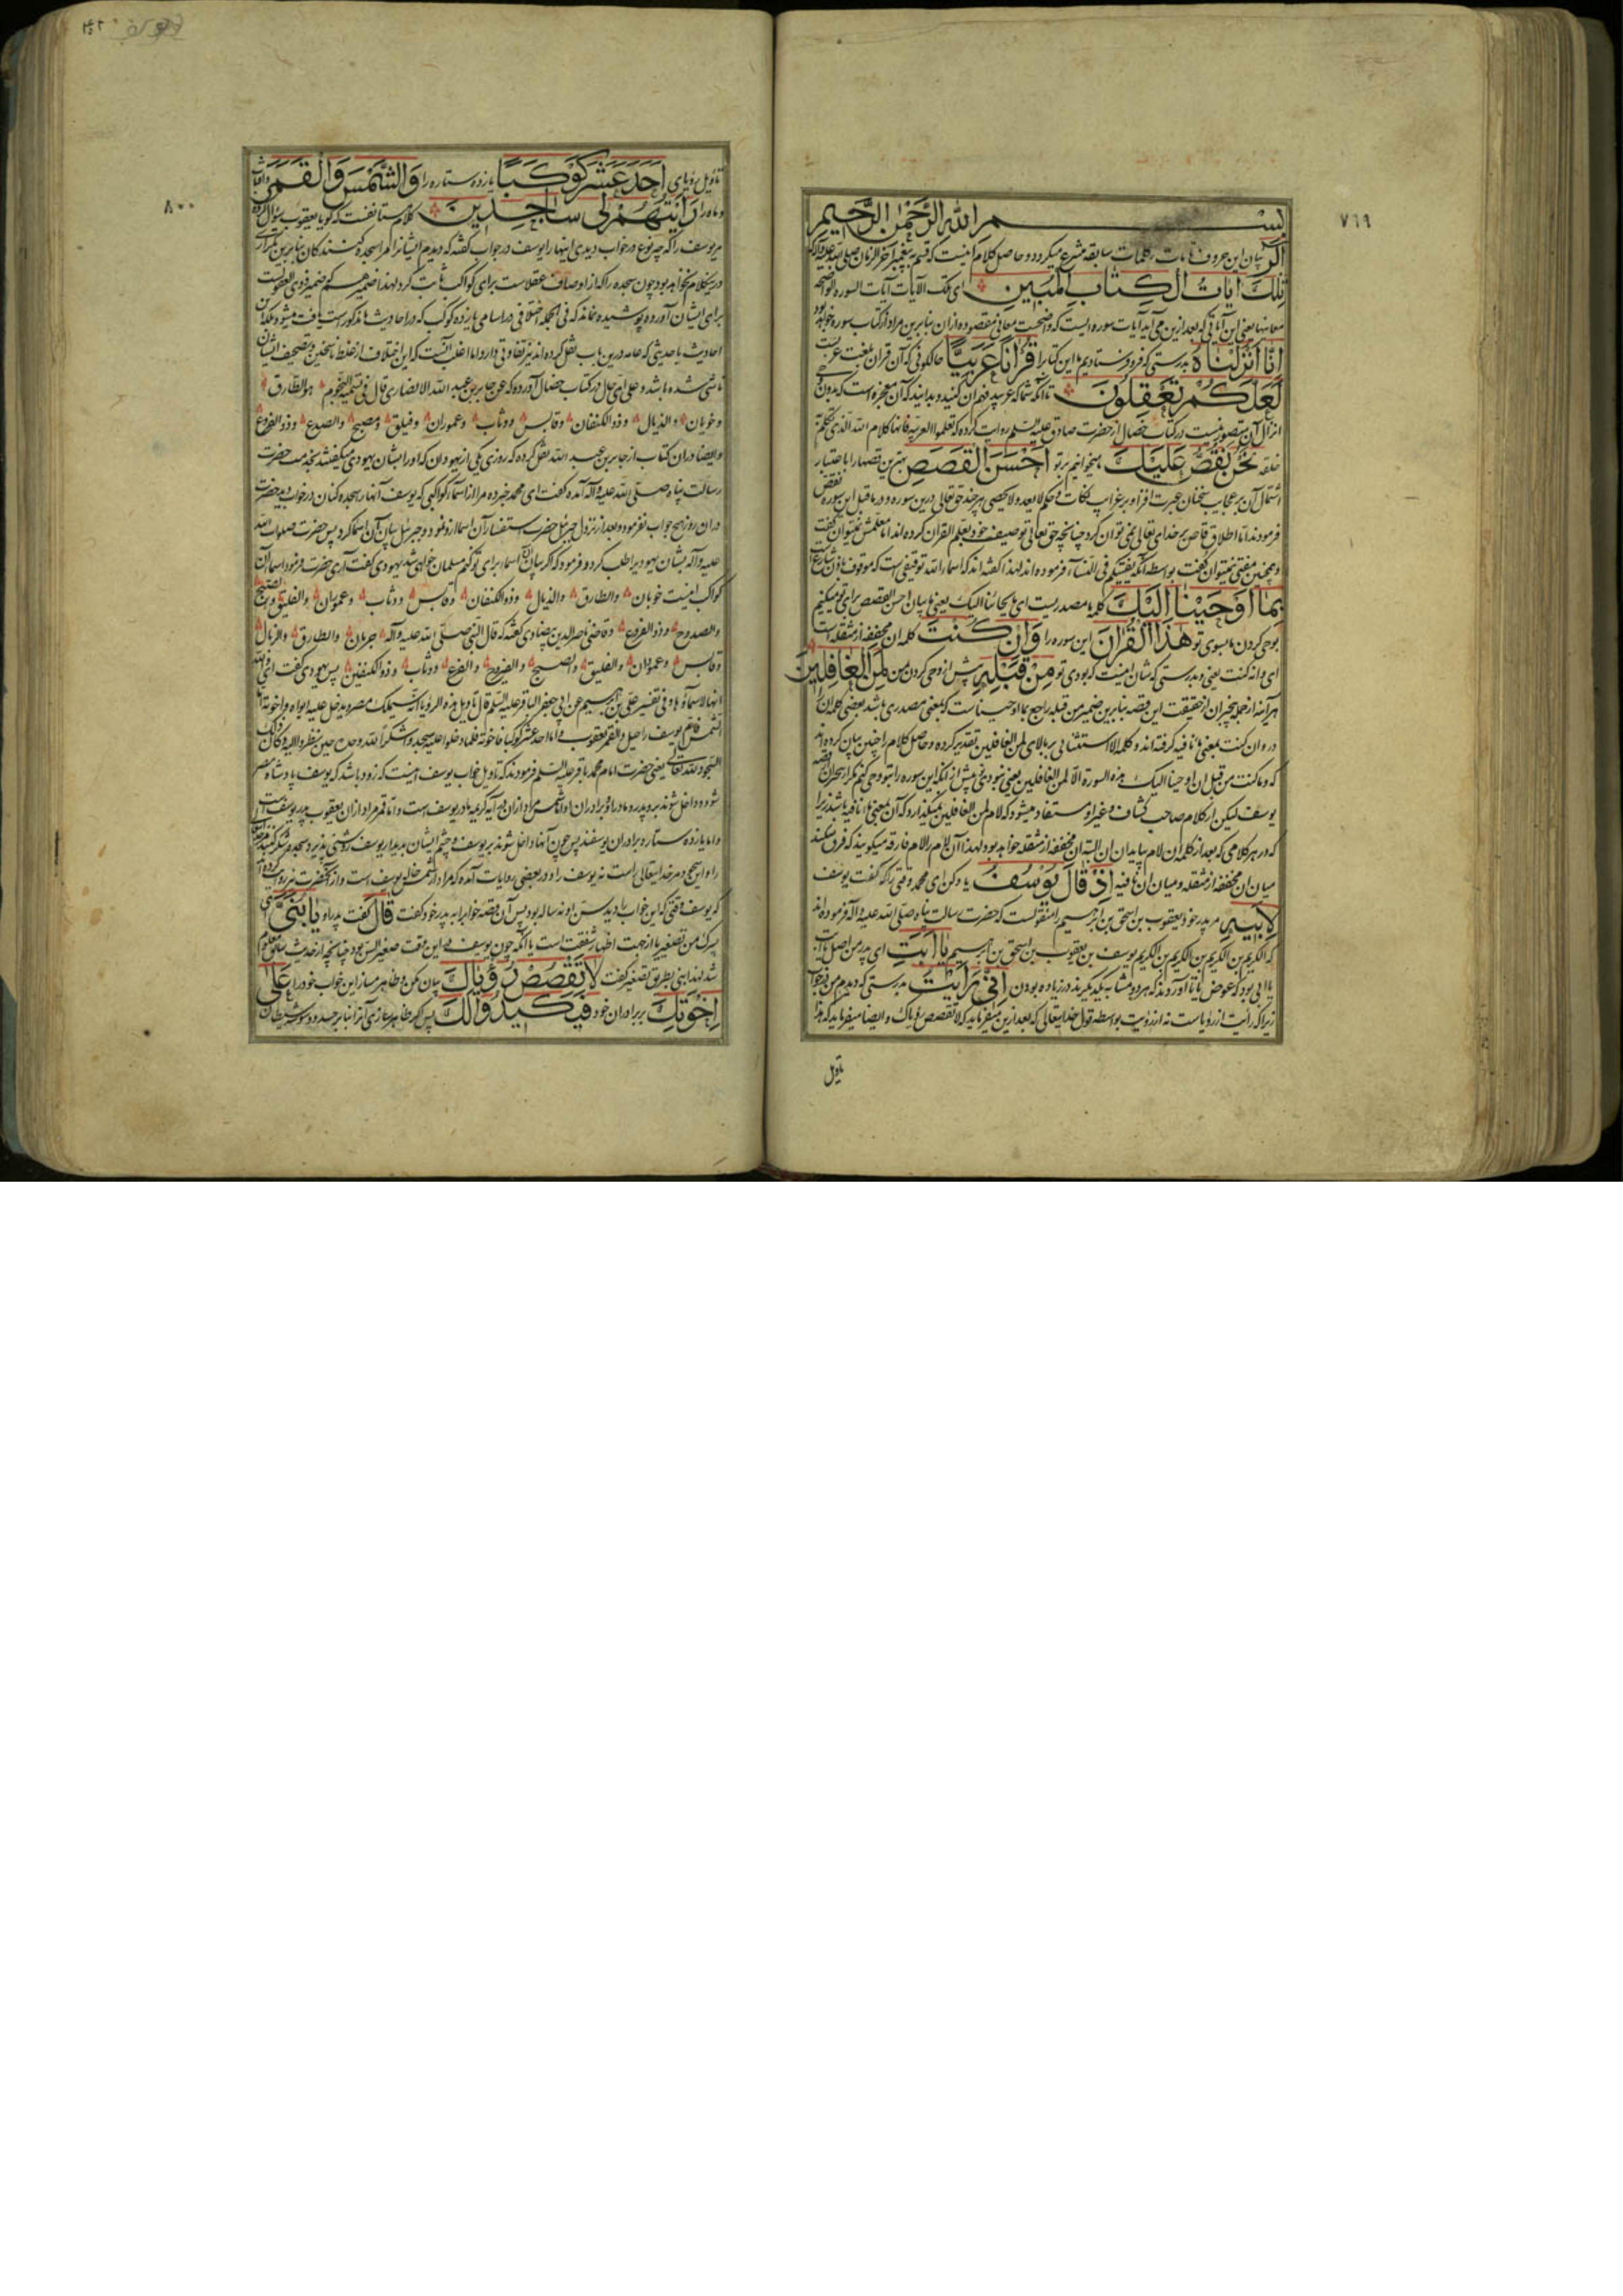 ٧٦٩
بسم الله الرحمن الرحيم
الر بیان این حروف در کلمات سابقه مشرح میکردد و حاصل کلام اینست که قسم به پیغمبر آخر الزمان صلی الله علیه وآله که
تلك ايات الكتاب المبين ای تلک الآیات آیات السورة الواضحة
معانیها یعنی این آیاتی که بعد ازین می آید آیات سوره ایست که واضحست معانی مقصوده ازان بنابرین مراد از کتاب سوره خواهد بود
انا انزلناه بدرستی که فرو فرستادیم ما این کتاب را قرانا عربيا حالکونی که آن قران بلغت عربست
لعلكم تعقلون تا آنکه شما که عربید فهم آن کنید و بدانید که آن معجزه است که بدون
انزال آن متصور نیست در کتاب خصال از حضرت صادق علیه السلم روایت کرده که تعلموا العربیه فانها کلام الله الذی تکلم به
خلقه نحن نقص عليك میخوانیم بر تو احسن القصص بهترین قصها را باعتبار
اشتمال آن بر عجایب سخنان عبرت افزا و بر غرایب نکات و حکم لا یعد و لا یحصی هر چند حق تعالی درین سوره و در ما قبل این سوره نقص
فرمودند اما اطلاق قاص بر خدای تعالی نمی توان کرد چنانچه حق تعالی توصیف خود بعلم القران کرده اند اما معلمش نمیتوان گفت
و همچنین مفتی نمیتوان گفت بواسطه آنکه یفتیکم فی النساء فرموده اند لهذا گفته اند که اسماء الله توقیفی است که موقوف باذن شارع است
بما اوحينا اليك کلمه ما مصدریست ای بایحائنا الیک یعنی ما بیان احسن القصص برای تو میکنیم
بوحی کردن ما بسوی تو هذا القران این سوره را وان كنت کلمه ان مخففه از مثقله است
ای و انه کنت یعنی و بدرستی که شان اینست که بودی تو من قبله پیش از وحی کردن من لمن الغافلين
هر آینه از جمله بیخبران از حقیقت این قصه بنابرین ضمیر من قبله راجع بما اوحیناست که بمعنی مصدری باشد بعضی کلمه ان را
در وان کنت بمعنی ما نافیه گرفته اند و کلمه الا استثنائی بر بالای لمن الغافلین تقدیر کرده و حاصل کلام را چنین بیان کرده اند
که وما کنت من قبل ان اوحینا الیک هذه السورة الا لمن الغافلین یعنی نبودی پیش از آنکه این سوره را بتو وحی کنیم مکر از بیخبران قصه
یوسف لیکن از کلام صاحب کشاف و غیر او مستفاد میشود که لام لمن الغافلین نمیکذارد که آن بمعنی ما نافیه باشد زیرا
که در هر کلامی که بعد از کلمه ان لام بیاید ان البته ان مخففه از مثقله خواهد بود لهذا آن لام را لام فارقه میکویند که فرق میکند
میان ان مخففه از مثقله و میان ان نافیه اذ قال يوسف یاد کن ای محمد وقتی را که گفت یوسف
لابيه مر پدر خود یعقوب بن اسحق بن ابرهیم را منقولست که حضرت رسالت پناه صلی الله علیه وآله فرموده اند
که الکریم بن الکریم بن الکریم بن الکریم یوسف بن یعقوب بن اسحق بن ابرهیم يا ابت ای پدر من اصل یا ابت
یا ابی بود که عوض یا تا آوردند که هر دو مشابه یکدیکرند در زیاده بودن اني رايت بدرستی که دیدم من در خواب
زیرا که رایت از رؤیاست نه از رؤیت بواسطه قول خدایتعالی که بعد ازین میفرماید که لا تقصص رؤیاک و ایضا میفرماید که هذا
تاویل
٨٠٠
تاویل رؤیای احد عشر كوكبا یازده ستاره را والشمس والقمر و آفتاب
و ماه را رايتهم لي ساجدين کلام مستانفست که کویا یعقوب سؤال کرده
مر یوسف را که چه نوع در خواب دیدی اینها را یوسف در جواب گفته که دیدم ایشانرا که مرا سجده کنندگان بنابرین تکرار
درین کلام نخواهد بود و چون سجده را که از اوصاف عقلاست برای کواکب ثابت کرد لهذا ضمیر هم که ضمیر ذوی العقولست
برای ایشان آورده پوشیده نماند که فی الجمله اختلافی در اسامی یازده کوکب که در احادیث مذکور است یافت میشود بلکه میان
احادیث ما حدیثی که عامه درین باب نقل کرده اند نیز تفاوتی دارد اما اغلب آنست که این اختلاف از غلط ناسخین و تصحیف ایشان
ناشی شده باشد و علی ای حال در کتاب خصال آورده که عن جابر بن عبد الله الانصاری قال فی تسمیة النجوم هو الطارق
و خوبان و الذیال و ذو الکنفان و قابس و وثاب و عمودان و فیلق و مصبح و الصدع و ذو الفروغ
و ایضا در ان کتاب از جابر بن عبد الله نقل کرده که روزی یکی از یهودان که او را بشان یهودی میکفتند بخدمت حضرت
رسالت پناه صلی الله علیه وآله آمده گفت ای محمد خبر ده مرا از اسماء کواکبی که یوسف آنها را سجده کنان در خواب دید حضرت
دران روز هیچ جواب نفرمود و بعد از نزول جبرئیل حضرت استفسار آن اسما ازو نمود و جبرئیل بیان آن اسما کرد پس حضرت صلوات الله
علیه وآله بشان یهود را طلب کرد و فرمود که اگر بیان آن اسماء برای تو کنم مسلمان خواهی شد یهودی گفت آری حضرت فرمود اسماء آن
کواکب اینست خوبان و الطارق و الذیال و ذو الکنفان و قابس و وثاب و عمودان و الفلیق و المصبح
و الصدوح و ذو الفروغ و قاضی ناصر الدین بیضاوی گفته که قال النبی صلی الله علیه وآله جربان و الطارق و الذیال
و قابس و عمودان و الفلیق و المصبح و الضروح و الفرغ و وثاب و ذو الکتفین پس یهودی گفت ای والله
انها لاسماؤها و فی تفسیر علی بن ابرهیم عن ابی جعفر الباقر علیه السلم قال تاویل هذه الرؤیا انه سیملک مصر و یدخل علیه ابواه و اخوته اما
الشمس فام یوسف راحیل و القمر یعقوب و اما احد عشر کوکبا فاخوته فلما دخلوا علیه سجدوا شکرا لله وحده حین نظروا الیه و کان ذلک
السجود لله تعالی یعنی حضرت امام محمد باقر علیه السلم فرمودند که تاویل خواب یوسف اینست که زود باشد که یوسف پادشاه مصر
شود و داخل شوند برو پدر و مادر او و برادران او اما شمس مراد ازان درین آیه کریمه مادر یوسف است و اما قمر مراد ازان یعقوب پدر یوسف است
و اما یازده ستاره برادران یوسفند پس چون آنها داخل شوند بر یوسف و چشم ایشان بدیدار یوسف روشنی پذیرد سجده شکر کنند مر خدا
را و این سجده مر خدایتعالی راست نه یوسف را و در بعضی روایات آمده که مراد از شمس خاله یوسف است و از آنحضرت نیز روایت کرده اند
که یوسف وقتی که این خواب را دید سن او نه ساله بود پس آن قصه خواب را به پدر خود گفت قال گفت پدر او يا بني ای
پسرک من تصغیر یا از جهت اظهار شفقت است یا آنکه چون یوسف در این وقت صغیر السن بود چنانچه از حدیث سابق معلوم
شد لهذا ابنی بطریق تصغیر گفت لا تقصص رؤياك بیان مکن و ظاهر مساز این خواب خود را على
اخوتك بر برادران خود فيكيدوا لك پس مکر و حیله سازی آنرا بنابر حسد و وسوسه شیطان